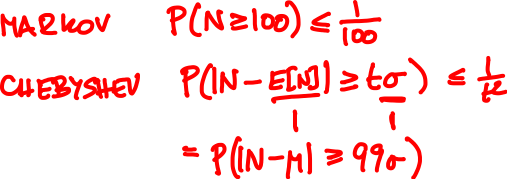 MARKOV P(N≥100) ≤ 1/100
CHEBYSHEV P(|N-E[N]| ≥ tσ) ≤ 1/t²
1 1
= P(|N-μ| ≥ 99σ)